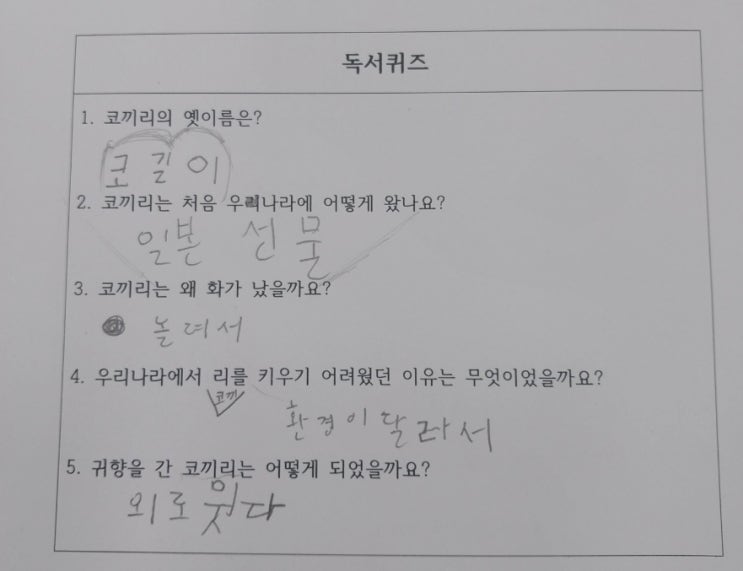 독서퀴즈
1. 코끼리의 옛이름은?
코길이
2. 코끼리는 처음 우리나라에 어떻게 왔나요?
일본 선물
3. 코끼리는 왜 화가 났을까요?
놀려서
4. 우리나라에서 리를 키우기 어려웠던 이유는 무엇이었을까요?
코끼
환경이달라서
5. 귀향을 간 코끼리는 어떻게 되었을까요?
외로웟다